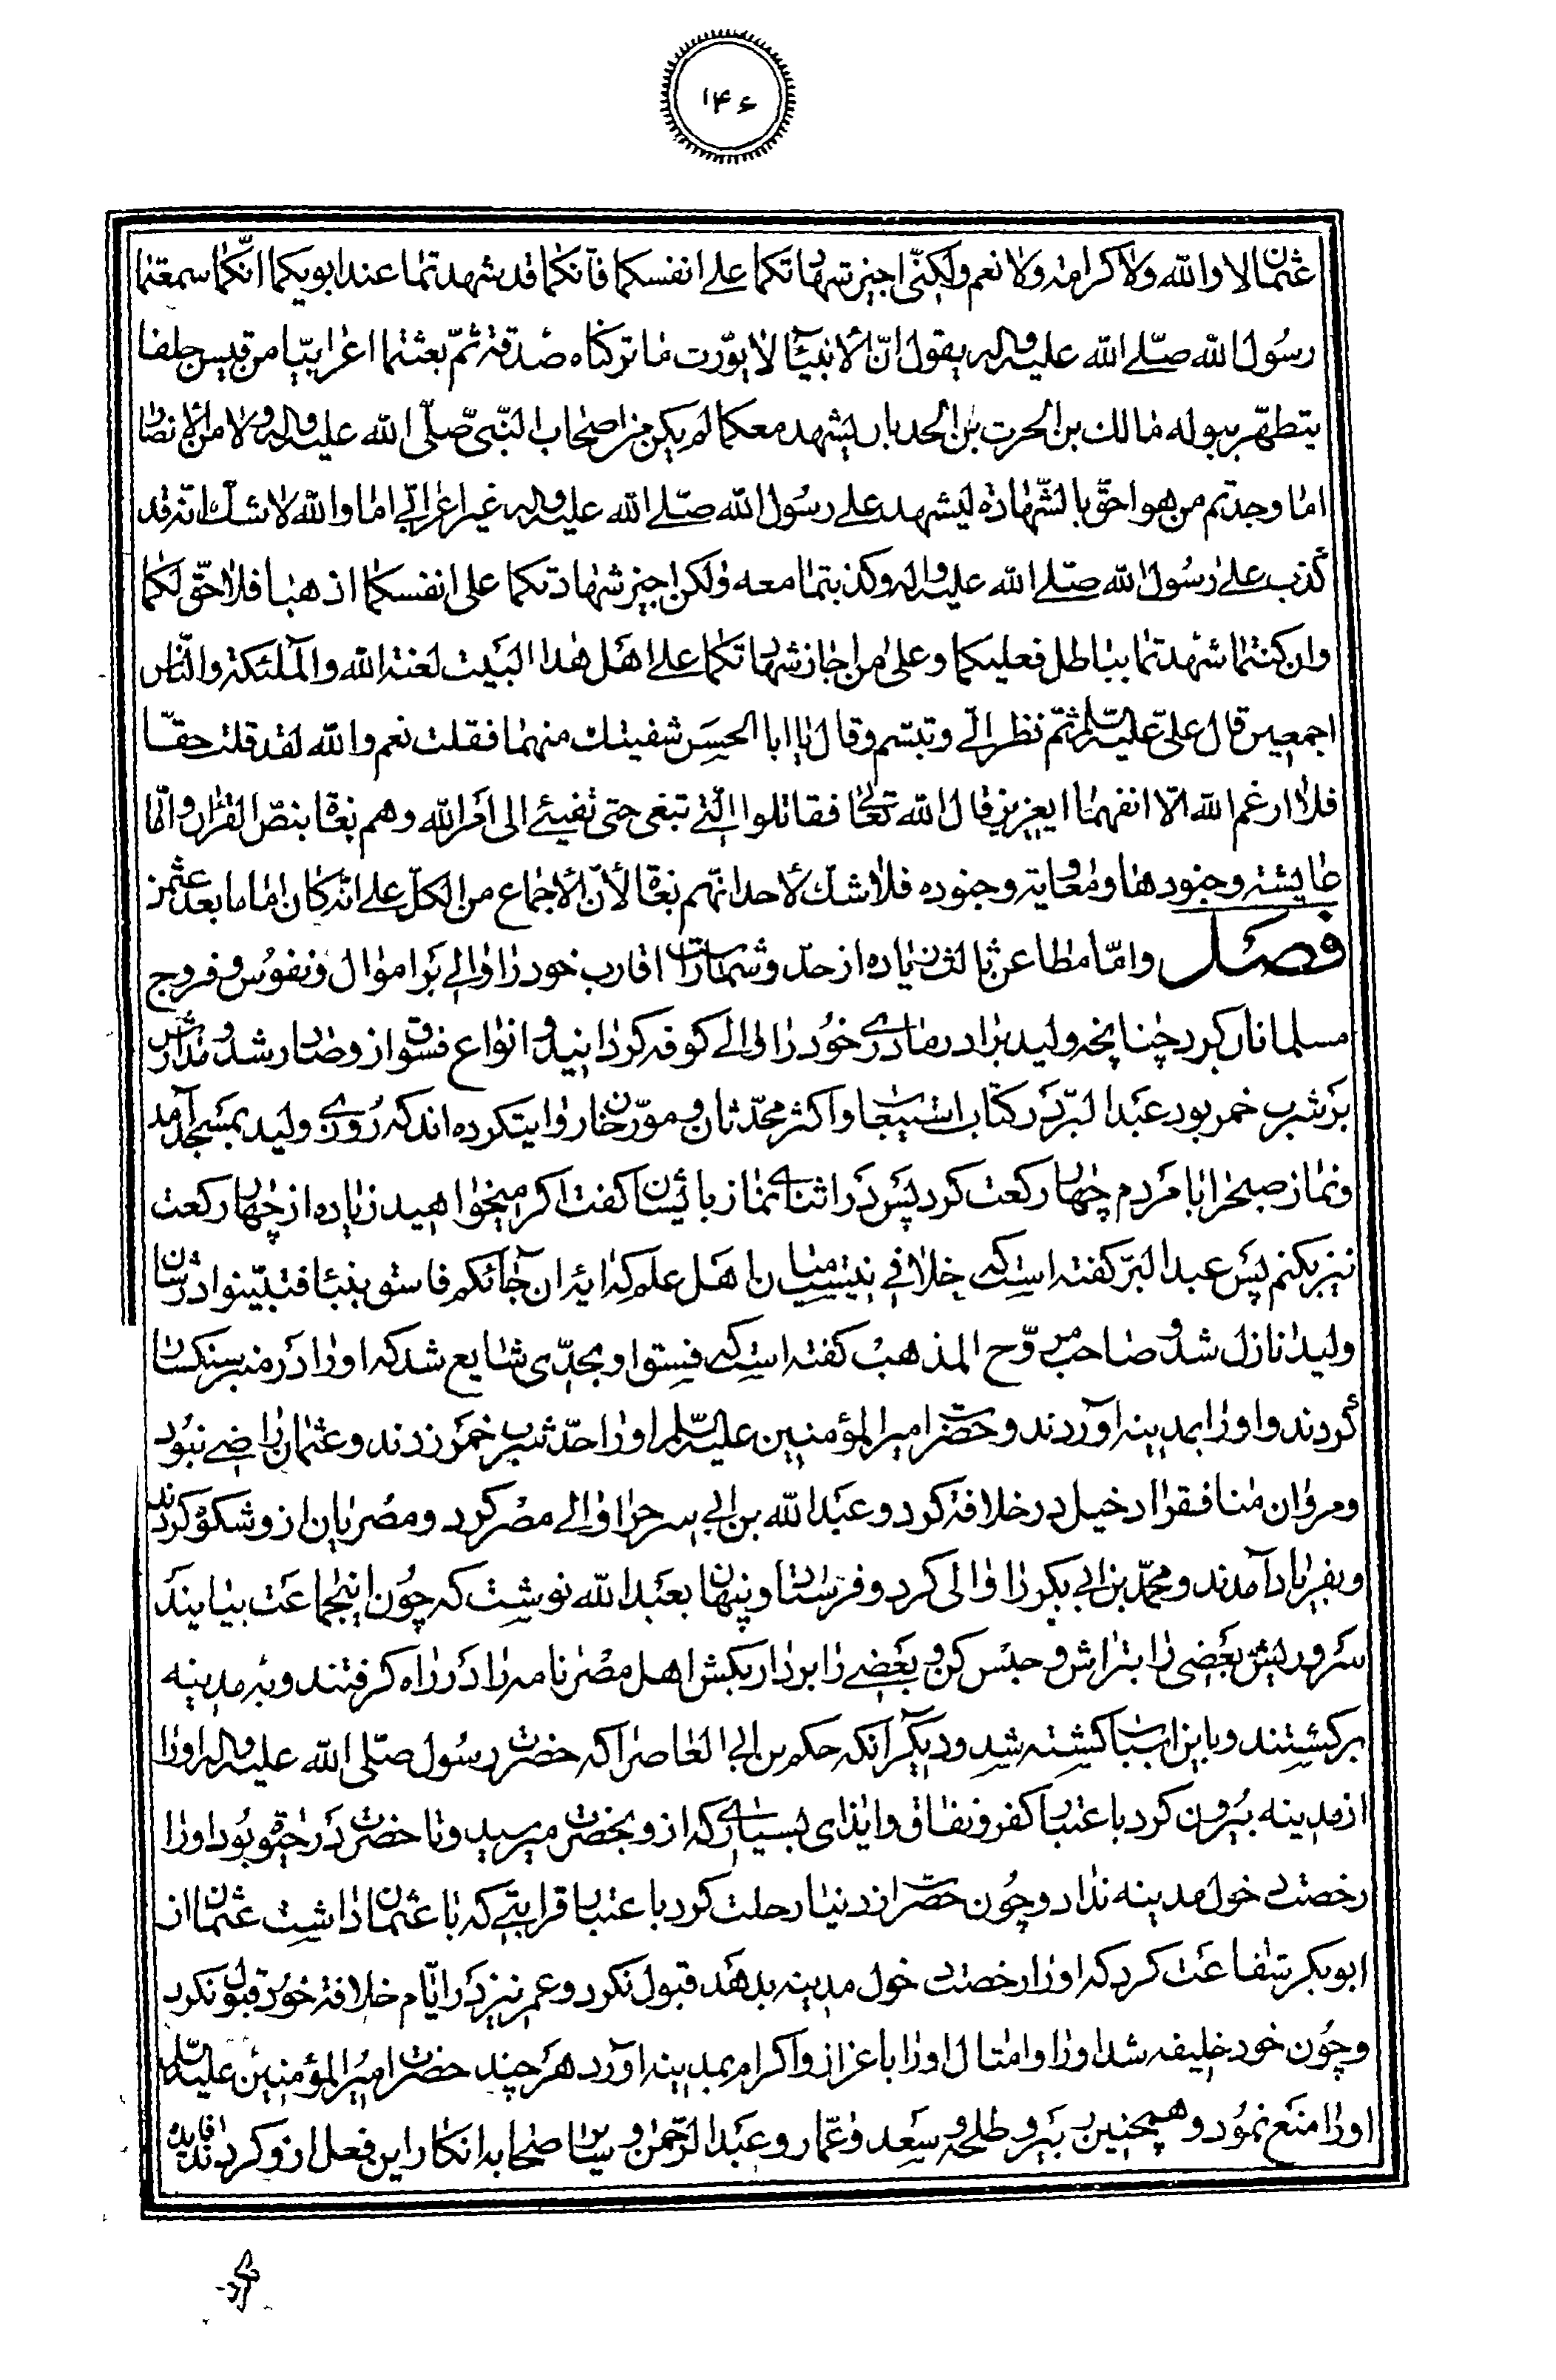 ۱۴۶
عثمان لا والله ولا کرامة ولا نعم ولکنّی اجیز شهادتکما علی انفسکما فانّکما قد شهدتما عند ابویکما انّکما سمعتما
رسُول الله صلّی الله علیه واله یقول انّ الأنبیآء لا یورّث ما ترکناه صدقة ثمّ بعثتما اعرابیّا من قیس جلفا
یتطهّر ببوله مالک بن الحرث بن الحدثان لیشهد معکما لم یکن من اصحاب النّبیّ صلّی الله علیه واله ولا من الأنصار
اما وجدتم من هو احقّ بالشّهادة لیشهد علی رسُول الله صلّی الله علیه واله غیر اعرابّی اما والله لا شکّ انّه قد
کذب علی رسُول الله صلّی الله علیه واله وکذبتما معه ولکن اجیز شهادتکما علی انفسکما اذهبا فلا حقّ لکما
وان کنتما شهدتما بباطل فعلیکما وعلی من اجاز شهادتکما علی اهل هذا البیت لعنة الله والملئکة والنّاس
اجمعین قال علیّ علیه السّلام ثمّ نظر الیّ وتبسّم وقال یا ابا الحسن شفیتک منهما فقلت نعم والله لقد قلت حقّا
فلا ارغم الله الّا انفهما ای عزیز قال الله تعالی فقاتلوا الّتی تبغی حتی تفیئ الی امر الله وهم بغاة بنصّ القران وامّا
عایشه وجنودها ومعاویه وجنوده فلا شکّ لأحد انّهم بغاة لأنّ الأجماع من الکلّ علی انّه کان اماما بعد عثمن
فصل وامّا مطاعن ثالث زیاده از حدّ و شمار است اقارب خود را والی بر اموال و نفوس و فروج
مسلمانان کرد چنانچه ولید برادر مادری خود را والی کوفه کردانید و انواع فسق از و صادر شد و مدارش
بر شرب خمر بود عبد البرّ در کتاب استیعاب و اکثر محدّثان و مورّخان روایت کرده اند که روزی ولید بمسجد آمد
و نماز صبح را با مردم چهار رکعت کرد پس در اثنای نماز با ایشان کفت اکر میخواهید زیاده از چهار رکعت
نیز بکنم پس عبد البرّ کفته است که خلافی نیست میان اهل علم که ایه ان جآئکم فاسق بنبأ فتبیّنوا در شان
ولید نازل شد و صاحب مروّج المذهب کفته است که فسق او بحدّی شایع شد که او را در منبر سنکسار
کردند و او را بمدینه اوردند و حضرت امیر المؤمنین علیه السّلم او را حدّ شرب خمر زدند و عثمان راضی نبود
و مروان منافق را دخیل در خلافة کرد و عبد الله بن ابی سرح را والی مصر کرد و مصریان از و شکوه کردند
و بفریاد آمدند و محمّد بن ابی بکر را والی کرد و فرستاد و پنهان بعبد الله نوشت که چون اینجماعت بیایند
سر و ریش بعضی را بتراش و حبس کن و بعضی را بردار بکش اهل مصر نامه را در راه کرفتند و به مدینه
برکشتند و باین اسباب کشته شد و دیگر آنکه حکم بن ابی العاص را که حضرت رسول صلّی الله علیه واله او را
از مدینه بیرون کرد باعتبار کفر و نفاق و ایذای بسیاری که از و بحضرت میرسید و تا حضرت در حیوة بود او را
رخصت دخول مدینه نداد و چون حضرت از دنیا رحلت کرد باعتبار قرابتی که با عثمان داشت عثمان از
ابوبکر شفاعت کرد که او را رخصت دخول مدینه بدهد قبول نکرد و عمر نیز در ایّام خلافة خود قبول نکرد
و چون خود خلیفه شد او را و امثال او را باعزاز و اکرام بمدینه اورد هر چند حضرت امیر المؤمنین علیه السّلم
او را منع نمود و همچنین زبیر و طلحه و سعد و عمّار و عبد الرّحمن و سایر صحابه انکار این فعل از و کردند فایده